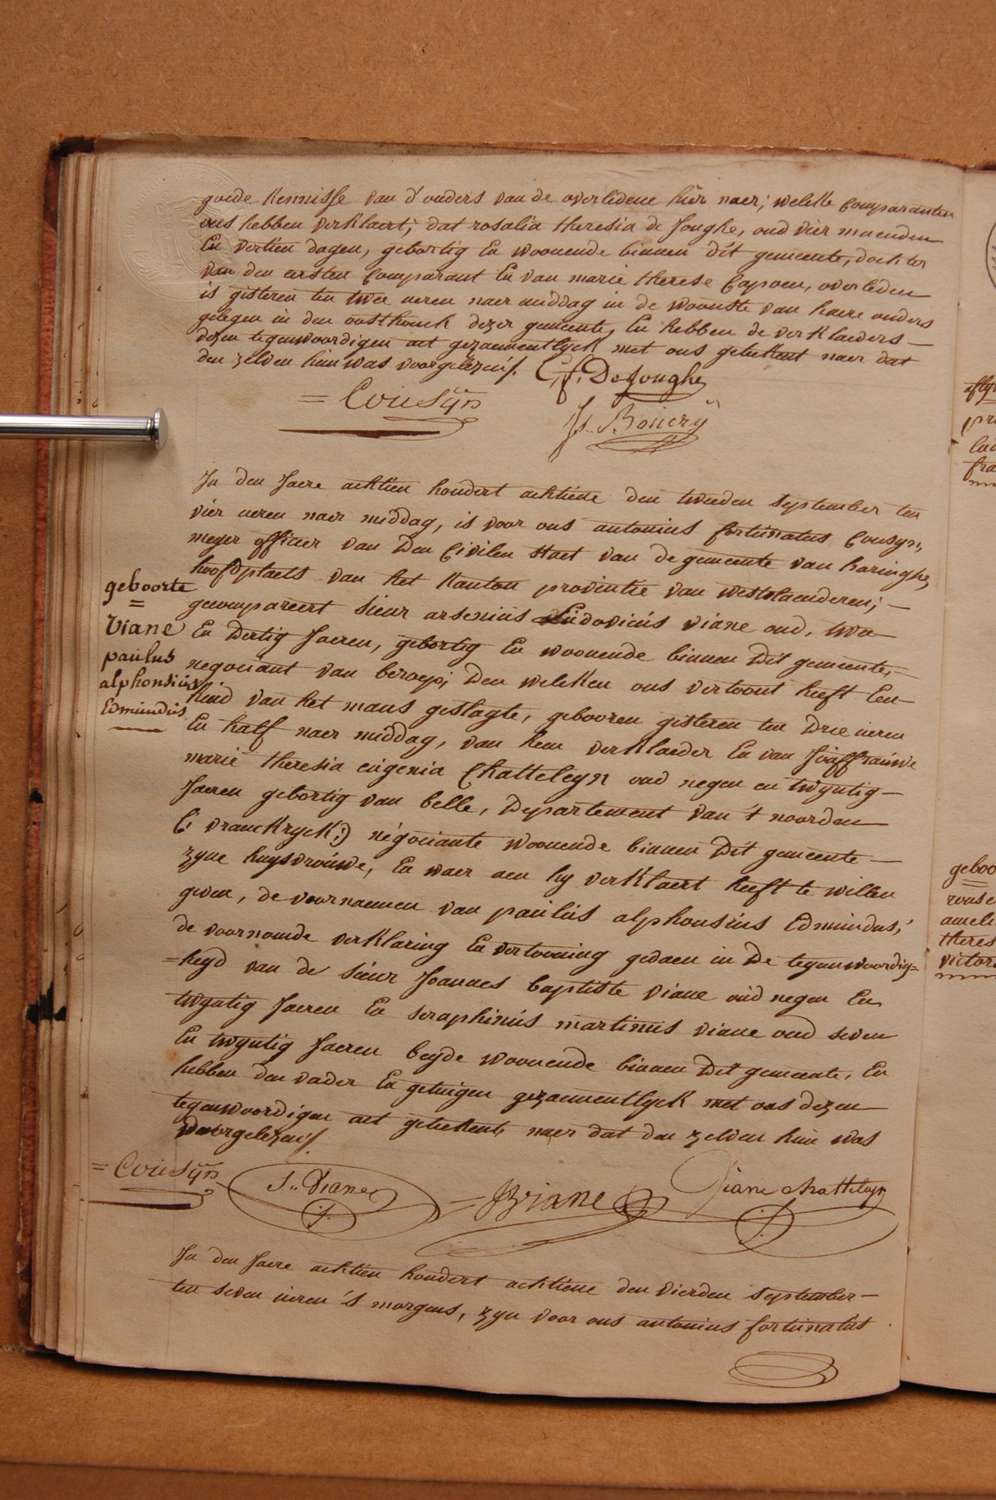 goede kennisse van d'ouders van de overledene hier naer; welkke Comparanten
ons hebben verklaert; dat rosalia theresia de Jonghe, oud vier maenden
En veertien dagen, gebortig En woonende binnen dit gemeente, dochter
van den eersten Comparant En van marie therese Capoen, overleden
is gisteren ten twee ueren naer middag in de woonste van haere ouders
gelegen in den oosthouck dezer gemeente, En hebben de verklaeders
dezen tegenwoordigen act gezaementlyck met ons geteekent naer dat
den zelden hun was voorgelezen/.
C. f. DeJonghe
= Cousyn
Js. Bouery
In den Jaere achtien hondert achtiene den tweeden september ten
vier ueren naer middag, is voor ons antonius fortunatus Cousyn,
meyer officier van Den Civilen staet van de gemeente van haringhe,
hoofdplaets van het kanton provintie van westvlaenderen;
gecompareert sieur arsenius Ludovicus viane oud, twee
En Dertig Jaeren, gebortig En woonende binnen Dit gemeente,
negociant van beroep; Den welkken ons vertoont heeft Een
kind van het mans geslagte, gebooren gisteren ten Drie ueren
En half naer middag, van hem verklaeder En van Joufffrauwe
marie theresia eugenia Chatteleyn oud negen en twyntig
Jaeren gebortig van belle, Departement van 't noorden
(: vranckryck:) négociante woonende binnen Dit gemeente
zyne huysvrouwe, En waer aen hy verklaert heeft te willen
geven, de voornaemen van paulus alphonsius Edmundus;
de voornomde verklaring En vertooning gedaen in De tegenwoordig=
=heyd van de sieur Joannes baptiste viane oud negen En
twyntig Jaeren En seraphinus martinus viane oud seven
En twyntig Jaeren beyde woonende binnen Dit gemeente, En
hebben den vader En getuigen gezaementlyck met ons dezen
tegenwoordigen act geteekent, naer dat den zelden hun was
voorgelezen/
geboorte
=
Viane
paulus
alphonsius
Edmundus
= Cousyn
S. Viane
JBViane
Viane Chattelyn
In den Jaere achtien hondert achtiene den vierden september
ten seven ueren 's morgens, zyn voor ons antonius fortunatus
geboo
theres
victor